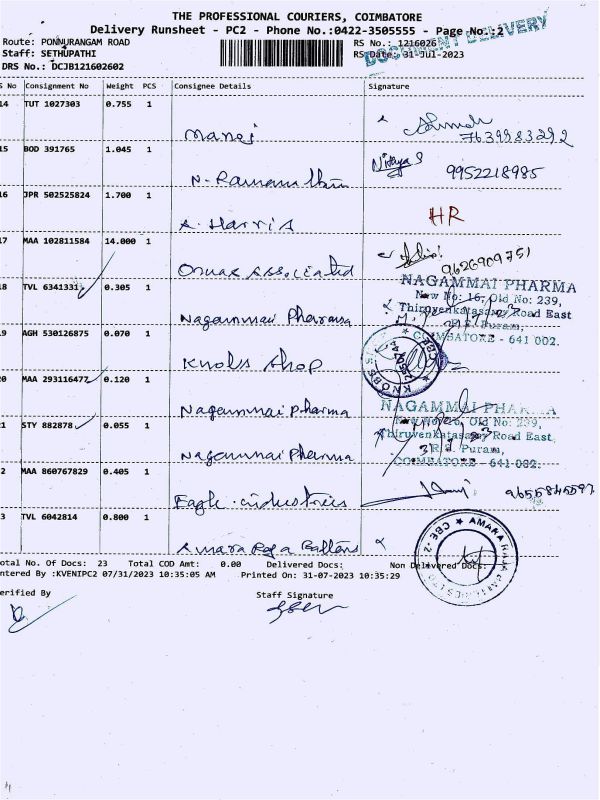 THE PROFESSIONAL COURIERS, COIMBATORE
Delivery Runsheet - PC2 - Phone No.:0422-3505555 - Page No.:2
Route: PONNURANGAM ROAD
RS No.: 1216026
DOCUMENT DELIVERY
Staff: SETHUPATHI
RS Date: 31-Jul-2023
DRS No.: DCJB121602602
S No Consignment No Weight PCS Consignee Details Signature
14 TUT 1027303 0.755 1
Manoj
7639983292
15 BOD 391765 1.045 1
Nidaya S 9952218985
N. Ramanathan
16 JPR 502525824 1.700 1
A. Harris
HR
17 MAA 102811584 14.000 1
Associated
9626909751
18 TVL 6341331 0.305 1
Nagammai Pharma
NAGAMMAI PHARMA
New No: 16, Old No: 239,
Thiruvenkatasamy Road East
R.S. Puram,
COIMBATORE - 641 002.
19 AGH 530126875 0.070 1
Knobs Shop
KNOBS
CBE
20 MAA 293116477 0.120 1
Nagammai Pharma
NAGAMMAI PHARMA
New No: 16, Old No: 239,
Thiruvenkatasamy Road East,
R.S. Puram,
COIMBATORE - 641 002.
21 STY 882878 0.055 1
Nagammai Pharma
22 MAA 860767829 0.405 1
Eagle industries
23 TVL 6042814 0.800 1
Amara Raja
AMARA RAJA BATTERIES LTD
CBE
Total No. Of Docs: 23 Total COD Amt: 0.00 Delivered Docs: Non Delivered Docs:
Entered By :KVENIPC2 07/31/2023 10:35:05 AM Printed On: 31-07-2023 10:35:29
Verified By
Staff Signature